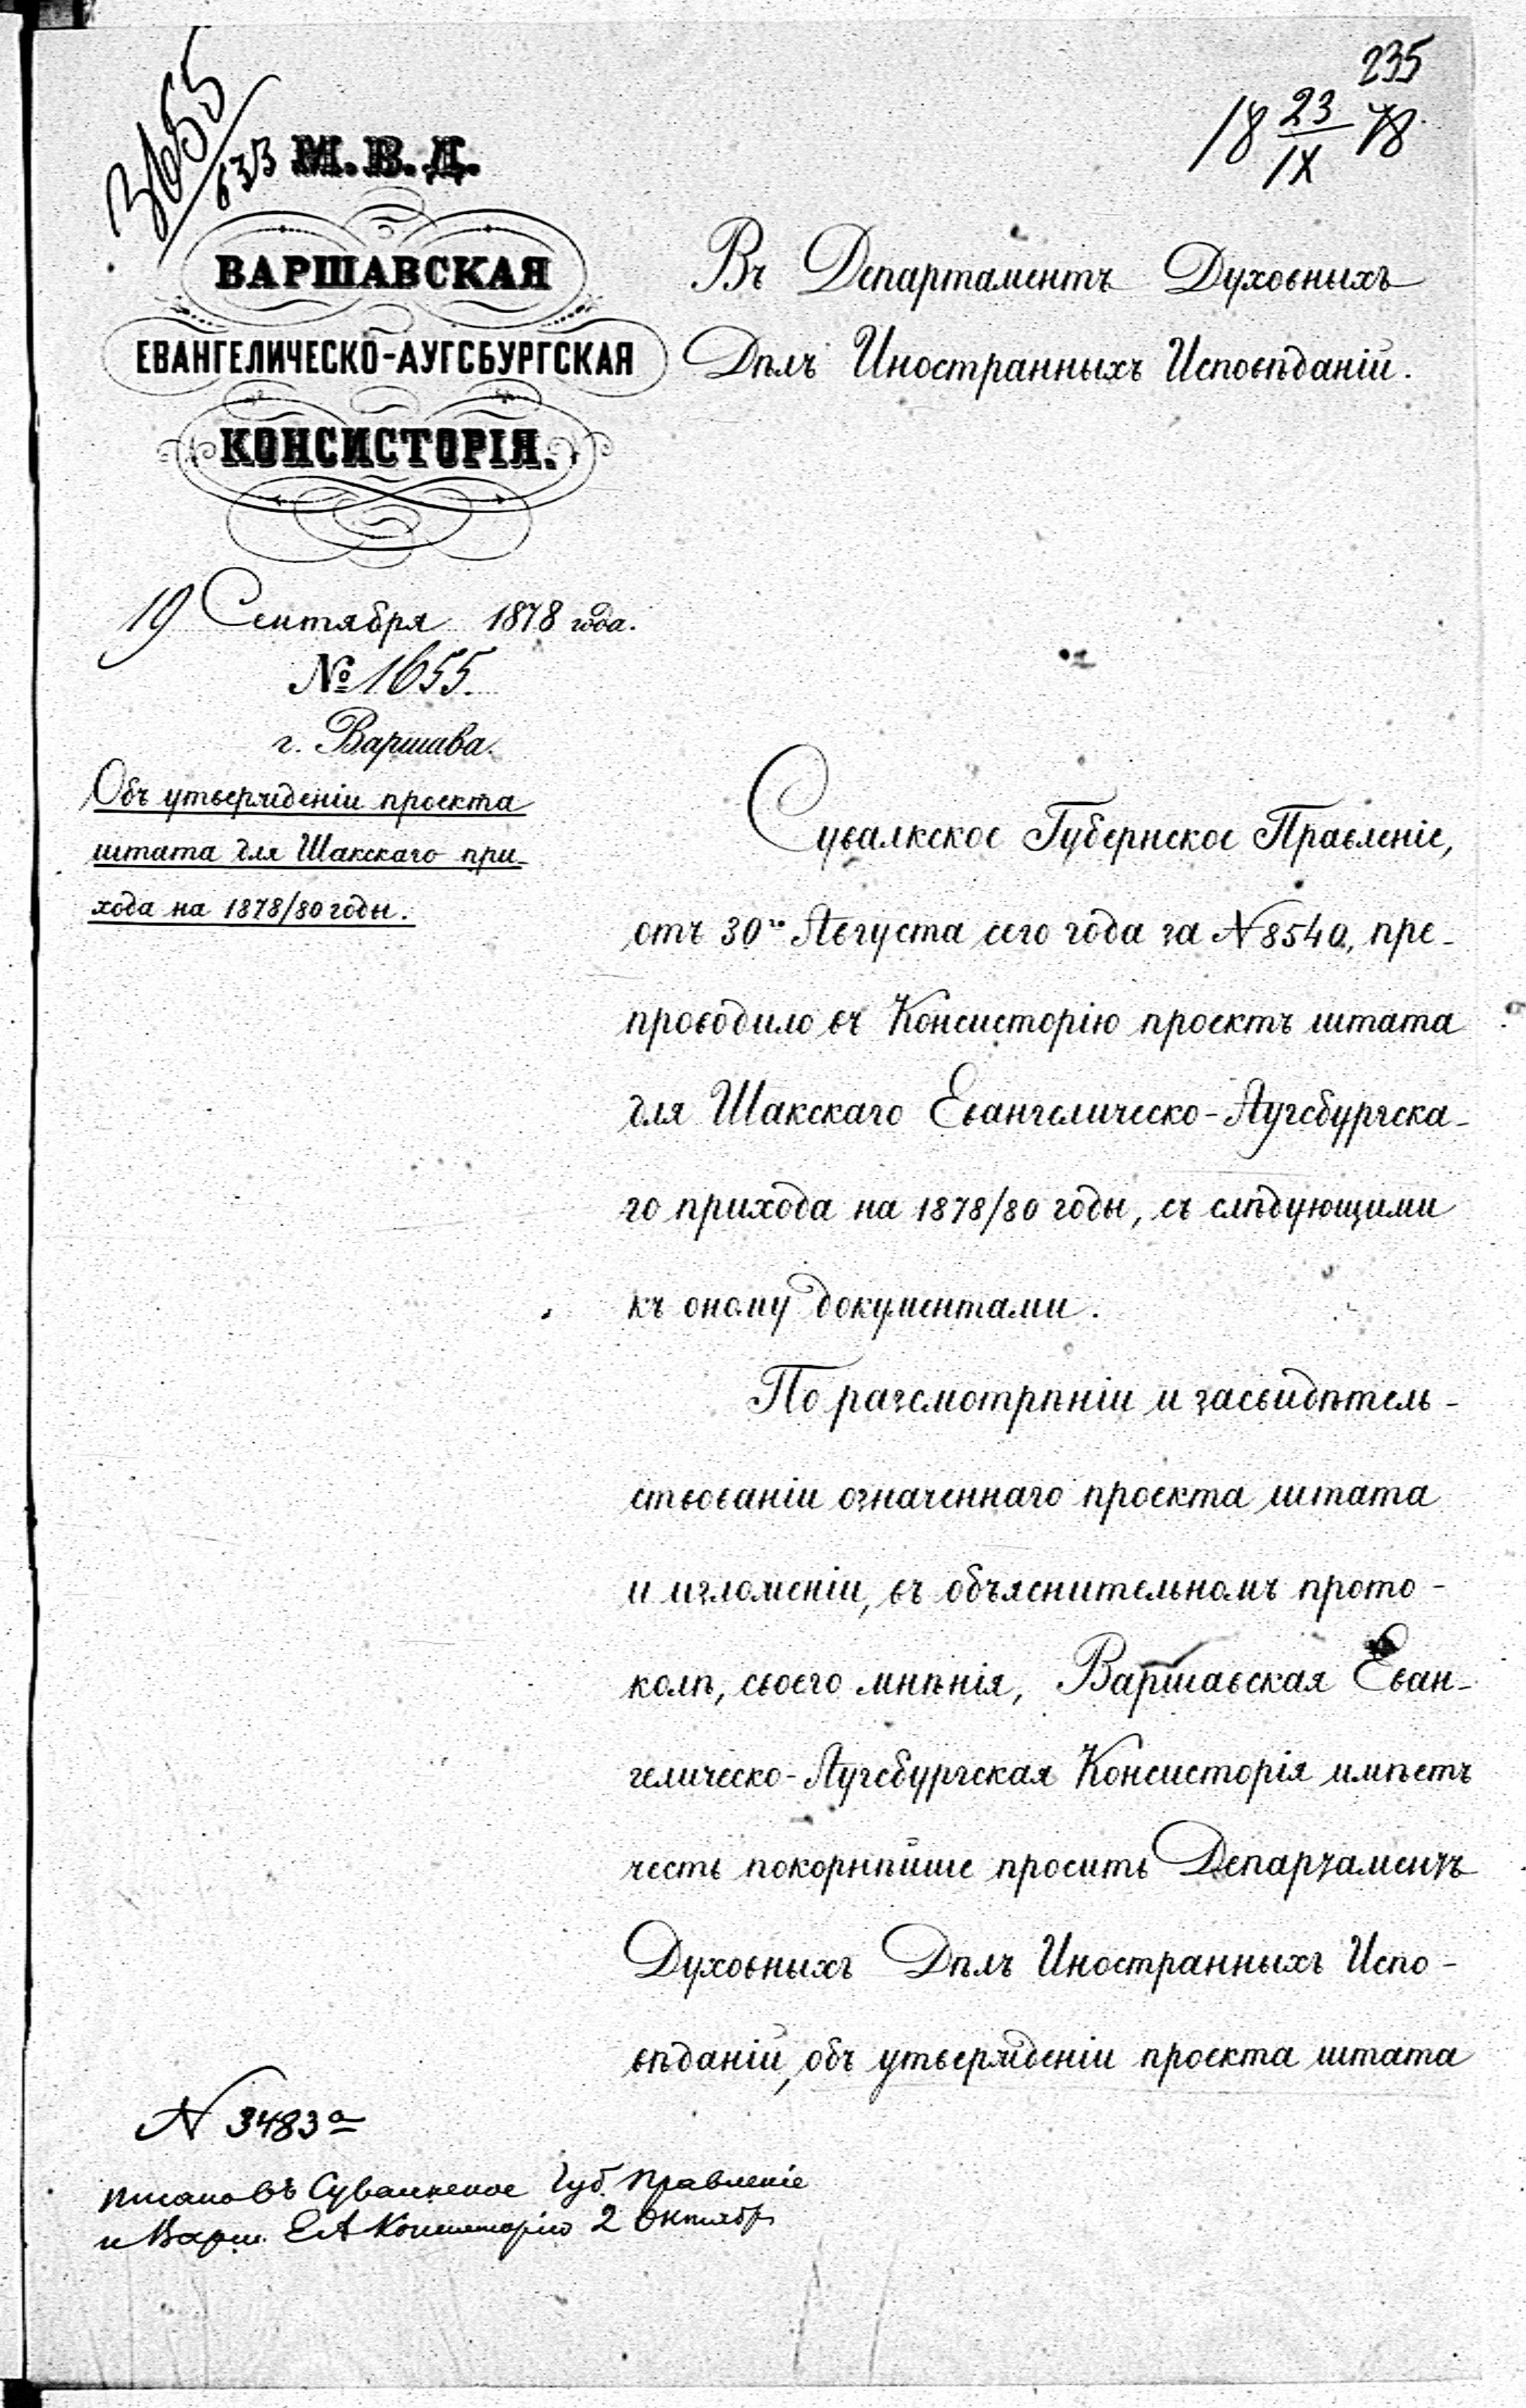 235
18 23/IX 78
3655/633
М. В. Д.
ВАРШАВСКАЯ
ЕВАНГЕЛИЧЕСКО-АУГСБУРГСКАЯ
КОНСИСТОРІЯ.
19 Сентября 1878 года.
№ 1655.
г. Варшава.
Объ утвержденіи проекта
штата для Шакскаго при-
хода на 1878/80 годы.
Въ Департаментъ Духовныхъ
Дѣлъ Иностранныхъ Исповѣданій.
Сувалкское Губернское Правленіе,
отъ 30го Августа сего года за N 8540, пре-
проводило въ Консисторію проектъ штата
для Шакскаго Евангелическо-Аугсбургска-
го прихода на 1878/80 годы, съ слѣдующими
къ оному документами.
По разсмотрѣніи и засвидѣтель-
ствованіи означеннаго проекта штата
и изложеніи, въ объяснительномъ прото-
колѣ, своего мнѣнія, Варшавская Еван-
гелическо-Аугсбургская Консисторія имѣетъ
честь покорнѣйше просить Департаментъ
Духовныхъ Дѣлъ Иностранныхъ Испо-
вѣданій, объ утвержденіи проекта штата
N 3483а
писано въ Сувалкское Губ. Правленіе
и Варш. ЕА Консисторію 2 Октябр